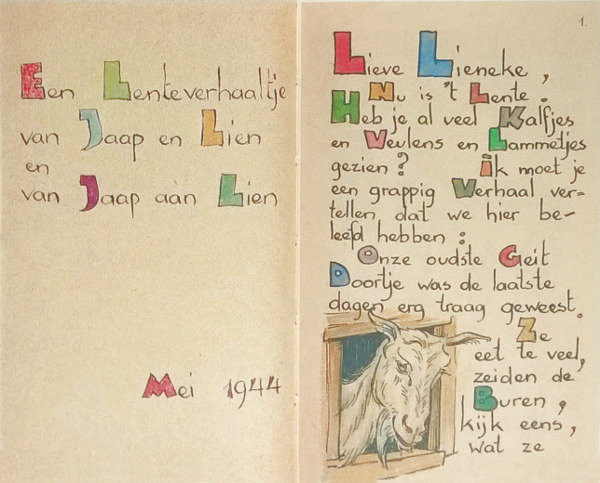 Een Lenteverhaaltje
van Jaap en Lien
en
van Jaap aàn Lien
Mei 1944
1.
Lieve Lieneke,
Nu is 't Lente.
Heb je al veel Kalfjes
en Veulens en Lammetjes
gezien? Ik moet je
een grappig Verhaal ver-
tellen dat we hier be-
leefd hebben:
Onze oudste Geit
Doortje was de laatste
dagen erg traag geweest.
Ze
eet te veel,
zeiden de
Buren,
kijk eens,
wat ze